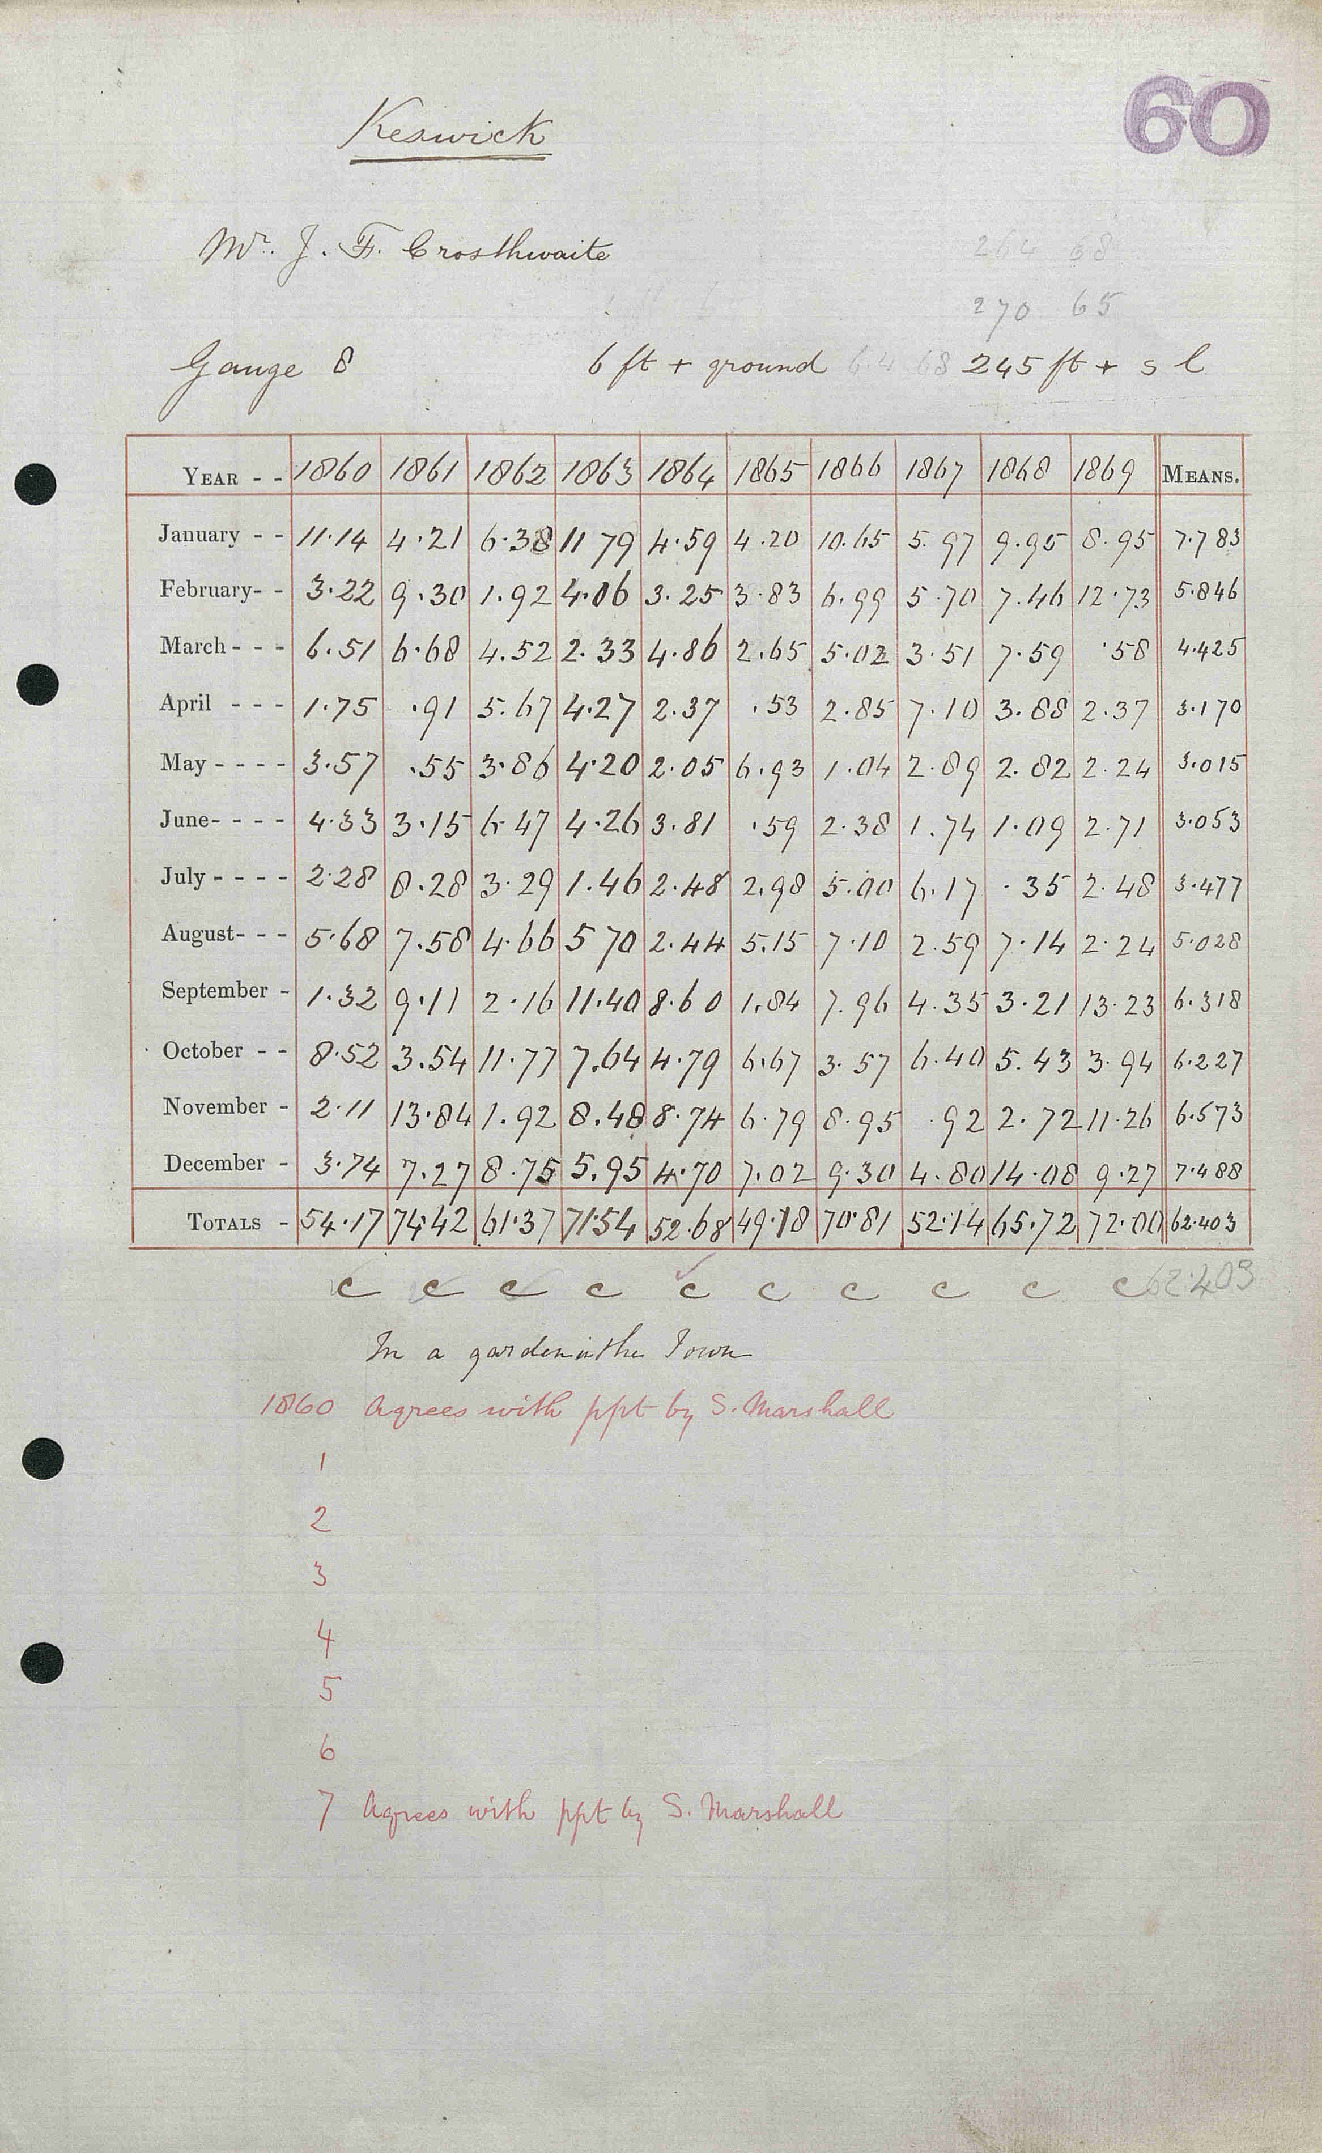 60
Keswick
Mr. J. F. Crosthwaite
264 68
270 65
Gauge 8 6 ft + ground 64 68 245 ft + s l
YEAR - - 1860 1861 1862 1863 1864 1865 1866 1867 1868 1869 MEANS.
January - - 11.14 4.21 6.38 11 79 4.59 4.20 10.65 5.97 9.95 8.95 7.783
February- - 3.22 9.30 1.92 4.06 3.25 3.83 6.99 5.70 7.46 12.73 5.846
March - - - 6.51 6.68 4.52 2.33 4.86 2.65 5.02 3.51 7.59 .58 4.425
April - - - 1.75 .91 5.67 4.27 2.37 .53 2.85 7.10 3.88 2.37 3.170
May - - - - 3.57 .55 3.86 4.20 2.05 6.93 1.04 2.89 2.82 2.24 3.015
June- - - - 4.33 3.15 6.47 4.26 3.81 .59 2.38 1.74 1.09 2.71 3.053
July - - - - 2.28 8.28 3.29 1.46 2.48 2.98 5.00 6.17 .35 2.48 3.477
August- - - 5.68 7.58 4.66 5 70 2.44 5.15 7.10 2.59 7.14 2.24 5.028
September - 1.32 9.11 2.16 11.40 8.60 1.84 7.96 4.35 3.21 13.23 6.318
October - - 8.52 3.54 11.77 7.64 4.79 6.67 3.57 6.40 5.43 3.94 6.227
November - 2.11 13.84 1.92 8.48 8.74 6.79 8.95 .92 2.72 11.26 6.573
December - 3.74 7.27 8.75 5.95 4.70 7.02 9.30 4.80 14.08 9.27 7.488
TOTALS - 54.17 74.42 61.37 71.54 52.68 49.18 70.81 52.14 65.72 72.00 62.403
c c c c c c c c c c 62.403
In a garden in the Town
1860 Agrees with ppt by S. Marshall
1
2
3
4
5
6
7 Agrees with ppt by S. Marshall